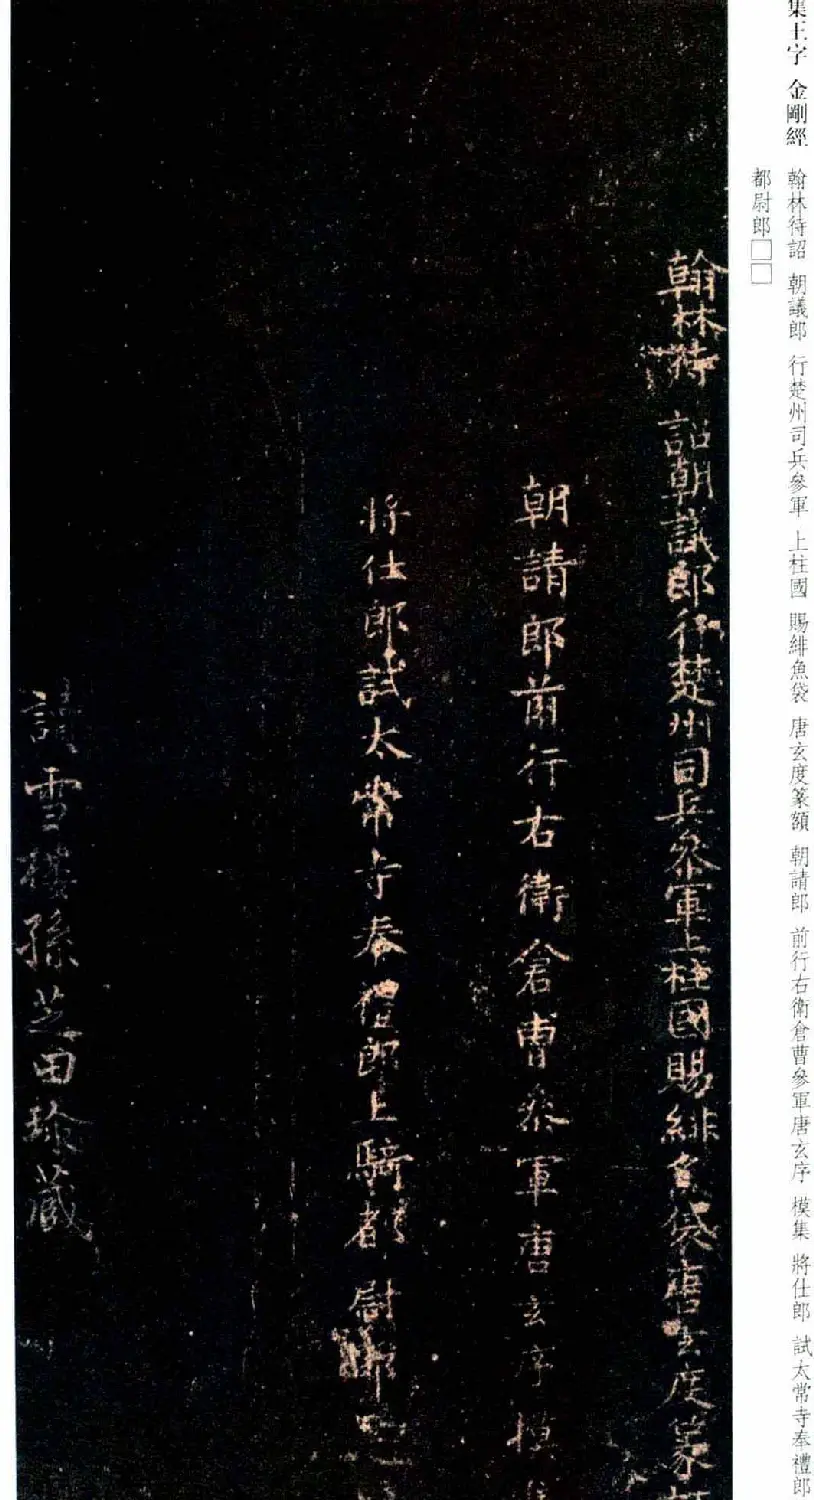 集王字 金剛經
翰林待詔 朝議郎 行楚州司兵參軍 上柱國 賜緋魚袋 唐玄度篆額 朝請郎 前行右衛倉曹參軍唐玄序 模集 將仕郎 試太常寺奉禮郎
都尉郎□□
翰林待詔朝議郎行楚州司兵參軍上柱國賜緋魚袋唐玄度篆
朝請郎前行右衛倉曹參軍唐玄序模集
將仕郎試太常寺奉禮郎上騎都尉郎
請雪樓孫芝田珍藏